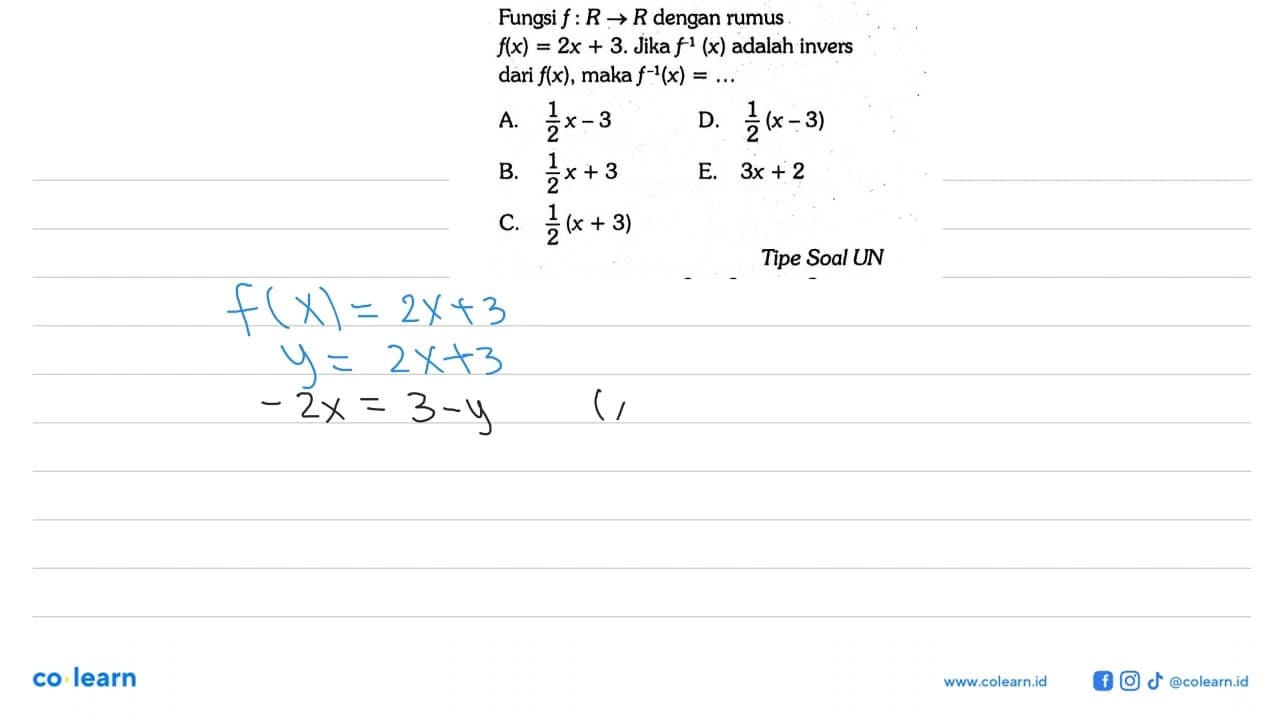 Fungsi f : R → R dengan rumus
f(x) = 2x + 3. Jika f⁻¹ (x) adalah invers
dari f(x), maka f⁻¹(x) = ...
A. 1/2 x – 3 D. 1/2 (x – 3)
B. 1/2 x + 3 E. 3x + 2
C. 1/2 (x + 3)
Tipe Soal UN
f(x) = 2x+3
y = 2x+3
-2x = 3-y (
co learn
www.colearn.id @colearn.id